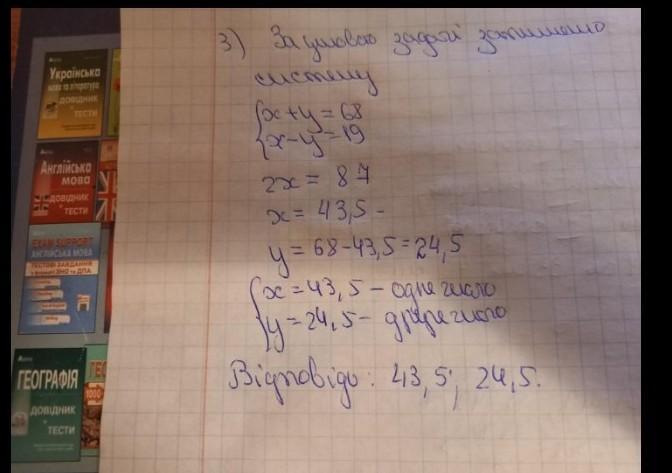 3) За умовою задачі запишемо
систему
{x+y=68
{x-y=19
2x = 87
x = 43,5 -
y = 68-43,5=24,5
{x=43,5 - одне число
{y=24,5- друге число
Відповідь: 43,5; 24,5.
Українська
мова та література
ДОВІДНИК
ТЕСТИ
Англійська
мова
ДОВІДНИК
ТЕСТИ
EXAM SUPPORT
АНГЛІЙСЬКА МОВА
ТЕСТОВІ ЗАВДАННЯ
у форматі ЗНО та ДПА
ГЕОГРАФІЯ
ДОВІДНИК
ТЕСТИ
1000